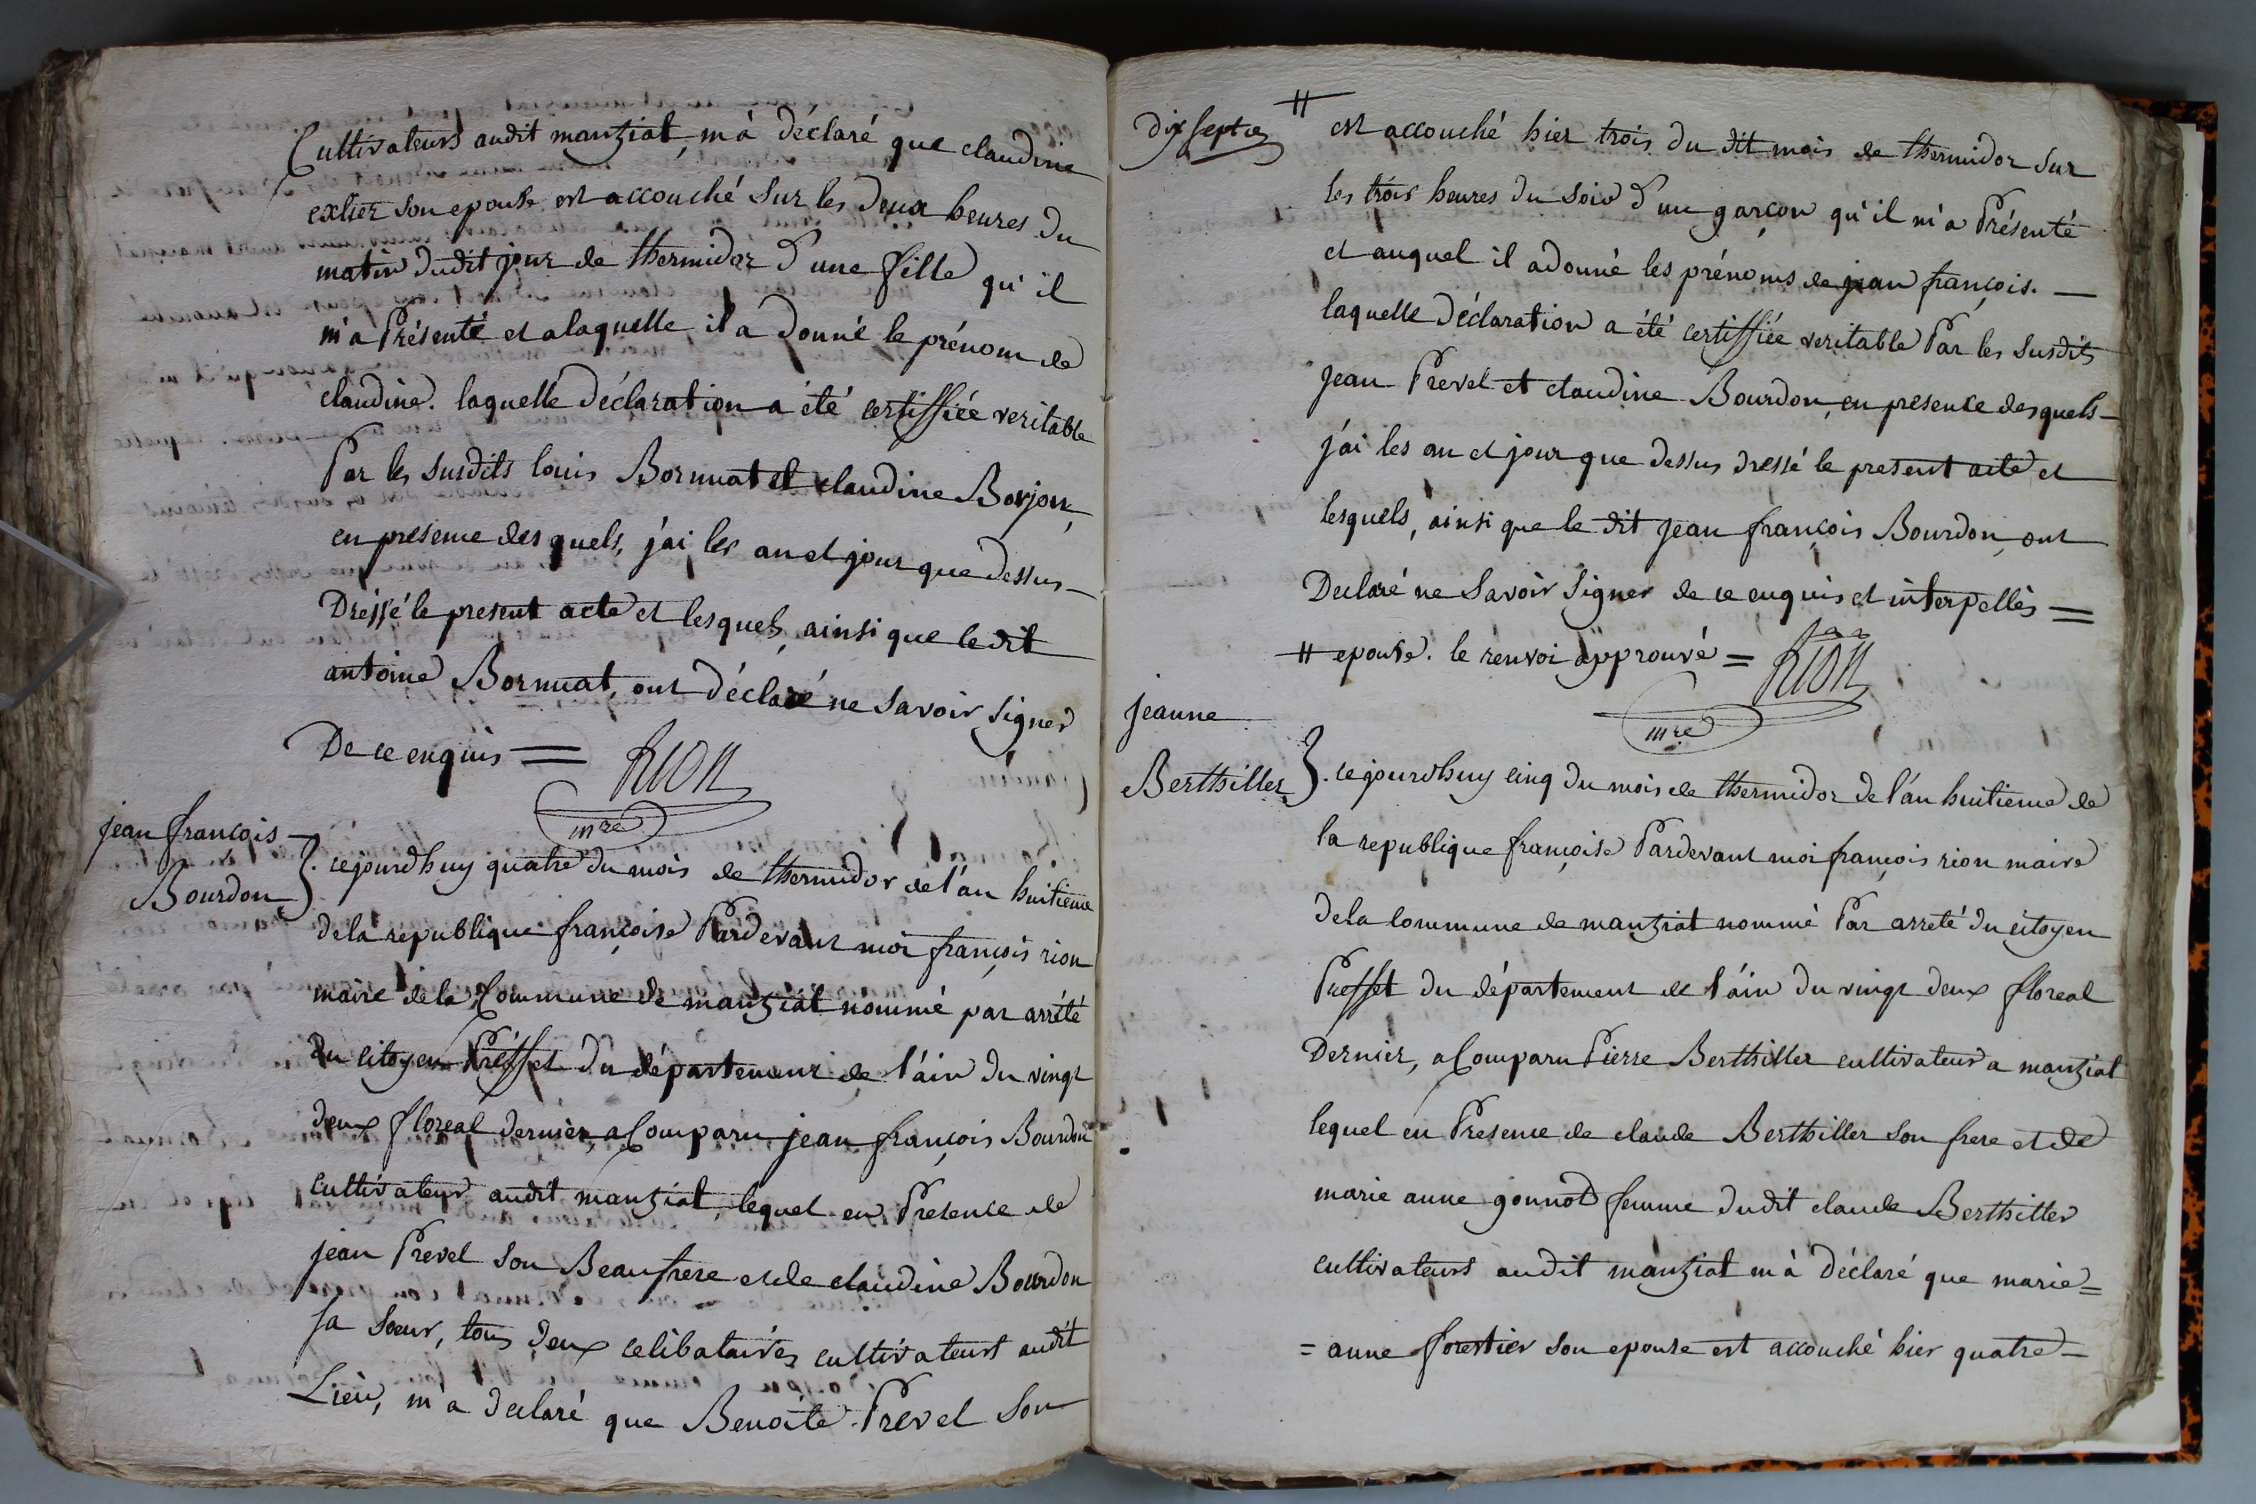 Cultivateurs audit manziat, m'à déclaré que claudine
exlier son epouse est accouché sur les deux heures du
matin dudit jour de thermidor d'une fille qu'il
m'a Présenté et alaquelle il a donné le prénom de
claudine. laquelle déclaration a été certiffiée veritable
Par les susdits louis Bornuat et claudine Borjon,
en presence des quels, j'ai les an et jour que dessus
Dréssé le present acte et lesquels, ainsi que ledit
antoine Bornuat, ont déclaré ne savoir signer
De ce enquis =
Rion
mre
jean françois
Bourdon
}. cejourdhuy quatre du mois de thermidor de l'an huitieme
dela republique françoise Pardevant moi françois rion
maire dela Commune de manziat nommé par arrêté
du citoyen Préffet du département de l'ain du vingt
deux floreal dernier, a Comparu jean françois Bourdon
cultivateur audit manziat, lequel en Présence de
jean Prevel son Beaufrere et de claudine Bourdon
sa sœur, tous deux celibataires cultivateurs audit
Lieu, m'a déclaré que Benoite Prevel son
dix sept
# est accouché hier trois du dit mois de thermidor sur
les trois heures du soir d'un garçon qu'il m'a Présenté
et auquel il adonné les prénoms de jean françois. —
laquelle déclaration a été certiffiée veritable Par les susdits
jean Prevel et claudine Bourdon, en presence desquels
j'ai les an et jour que dessus dressé le present acte et
lesquels, ainsi que le dit jean françois Bourdon, ont
Declaré ne Savoir signer de ce enquis et interpellés =
# epouse. le renvoi approuvé =
Rion
mre
jeanne
Berthiller
}. cejourdhuy cinq du mois de thermidor de l'an huitieme de
la republique françoise Pardevant moi françois rion maire
dela Commune de manziat nommé Par arreté du citoyen
Preffet du département de l'ain du vingt deux floreal
Dernier, a Comparu Pierre Berthiller cultivateur a manziat
lequel en Presence de claude Berthiller son frere et de
marie anne gonnod femme dudit claude Berthiller
cultivateurs audit manziat m'à déclaré que marie =
= anne forestier son epouse est accouché hier quatre